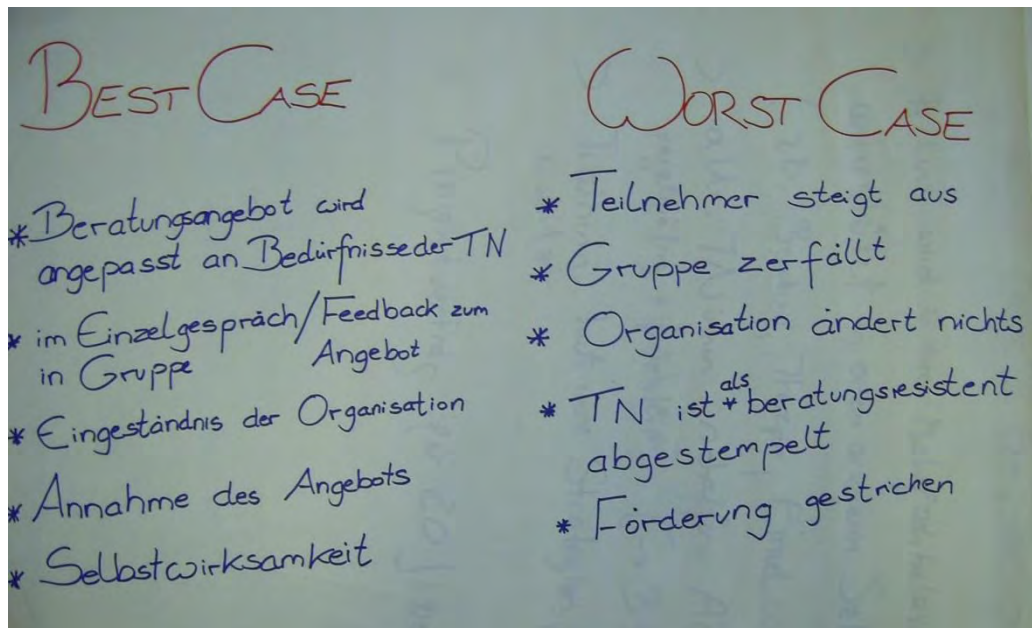 BEST CASE
* Beratungsangebot wird
angepasst an Bedürfnisse der TN
* im Einzelgespräch/Feedback zum
in Gruppe Angebot
* Eingeständnis der Organisation
* Annahme des Angebots
* Selbstwirksamkeit
WORST CASE
* Teilnehmer steigt aus
* Gruppe zerfällt
* Organisation ändert nichts
als
* TN ist * beratungsresistent
abgestempelt
* Förderung gestrichen